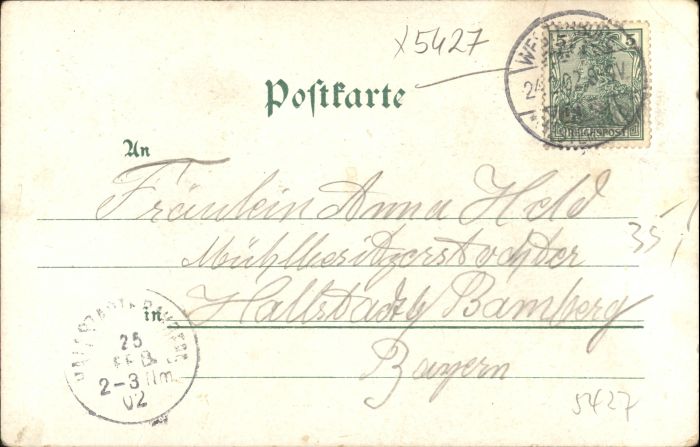 x5427
5 5
REICHSPOST
Postkarte
An
Fräulein Anna Held
Mühlbesitzerstochter
35
in Hallstadt b/ Bamberg
Bayern
25
FEB.
2-3 Nm.
02
5427